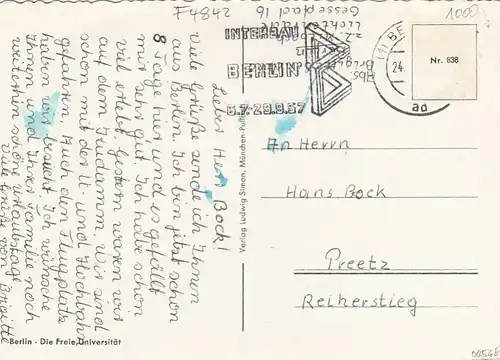 F4842
1000
INTERBAU
BERLIN
6.7.-29.9.57
(1) BE
24.
ad
Nr. 838
Lieber Herr Bock!
Viele Grüße sende ich Ihnen
aus Berlin. Ich bin jetzt schon
8 Tage hier und es gefällt
mir sehr gut. Ich habe schon
viel erlebt. Gestern waren wir
auf dem Kudamm. Wir sind
schon mit der U. und Hochbahn
gefahren. Auch den Flugplatz
haben wir besucht. Ich wünsche
Ihnen und Ihrer Familie noch
weiterhin schöne Urlaubstage
Viele Grüße von Brigitte
Verlag Ludwig Simon, München-Pull
An Herrn
Hans Bock
Preetz
Reiherstieg
Berlin - Die Freie Universität